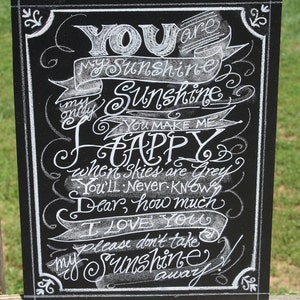 YOU are
my Sunshine
my only Sunshine
YOU MAKE ME
HAPPY
when skies are grey
You'll Never Know
Dear, how much
I LOVE YOU
please don't take
my Sunshine
away!